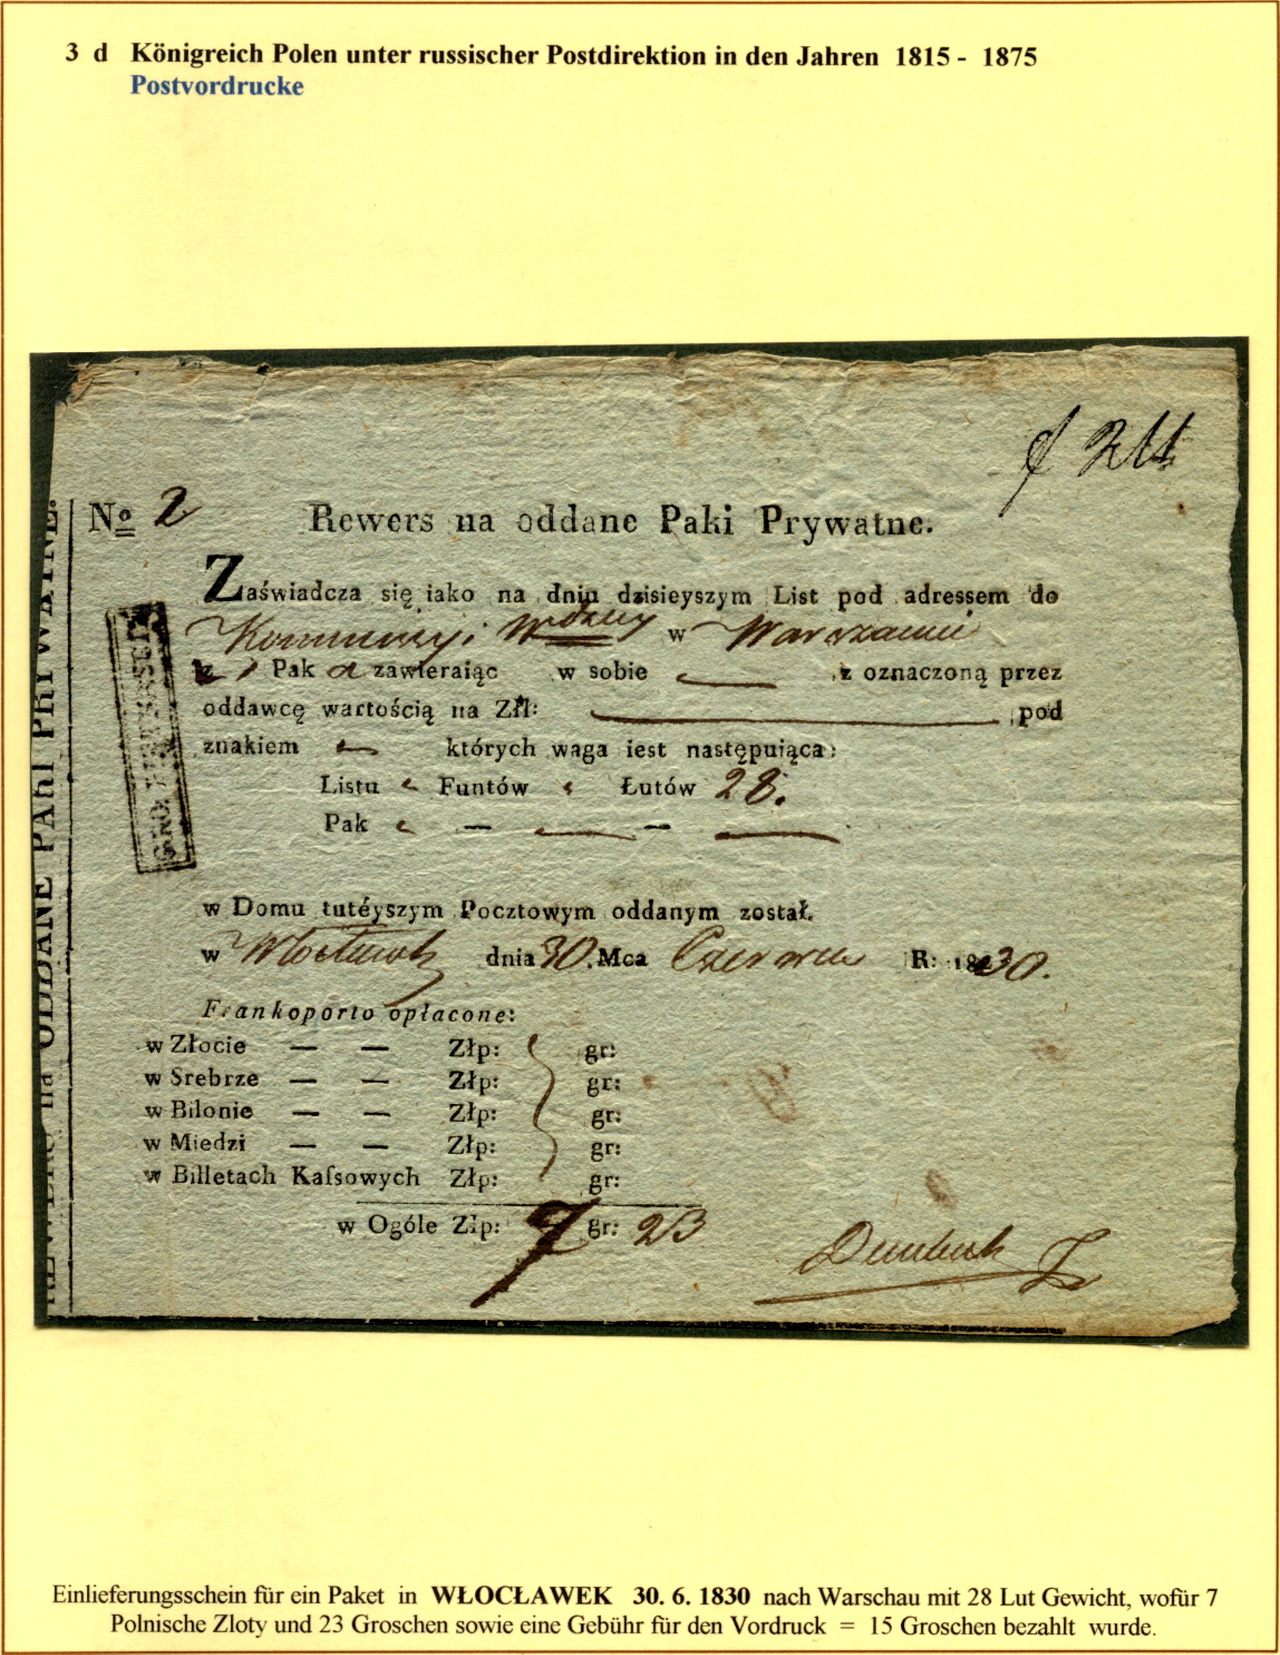 3 d Königreich Polen unter russischer Postdirektion in den Jahren 1815 - 1875
Postvordrucke
No 2
Rewers na oddane Paki Prywatne.
Zaświadcza się iako na dniu dzisieyszym List pod adressem do
w Warszawie
z 1 Pak a zawieraiąc w sobie z oznaczoną przez
oddawcę wartością na Złł: pod
znakiem których waga iest następuiąca:
Listu Funtów Łutów 28.
Pak — —
w Domu tutéyszym Pocztowym oddanym został.
w Włocławek dnia 30. Mca Czerwca R: 1830.
Frankoporto opłacone:
w Złocie — — Złp: gr:
w Srebrze — — Złp: gr:
w Bilonie — — Złp: gr:
w Miedzi — — Złp: gr:
w Billetach Kaſsowych Złp: gr:
w Ogóle Złp: 7 gr: 23
REWERS na ODDANE PAKI PRYWATNE.
Einlieferungsschein für ein Paket in WŁOCŁAWEK 30. 6. 1830 nach Warschau mit 28 Lut Gewicht, wofür 7
Polnische Zloty und 23 Groschen sowie eine Gebühr für den Vordruck = 15 Groschen bezahlt wurde.